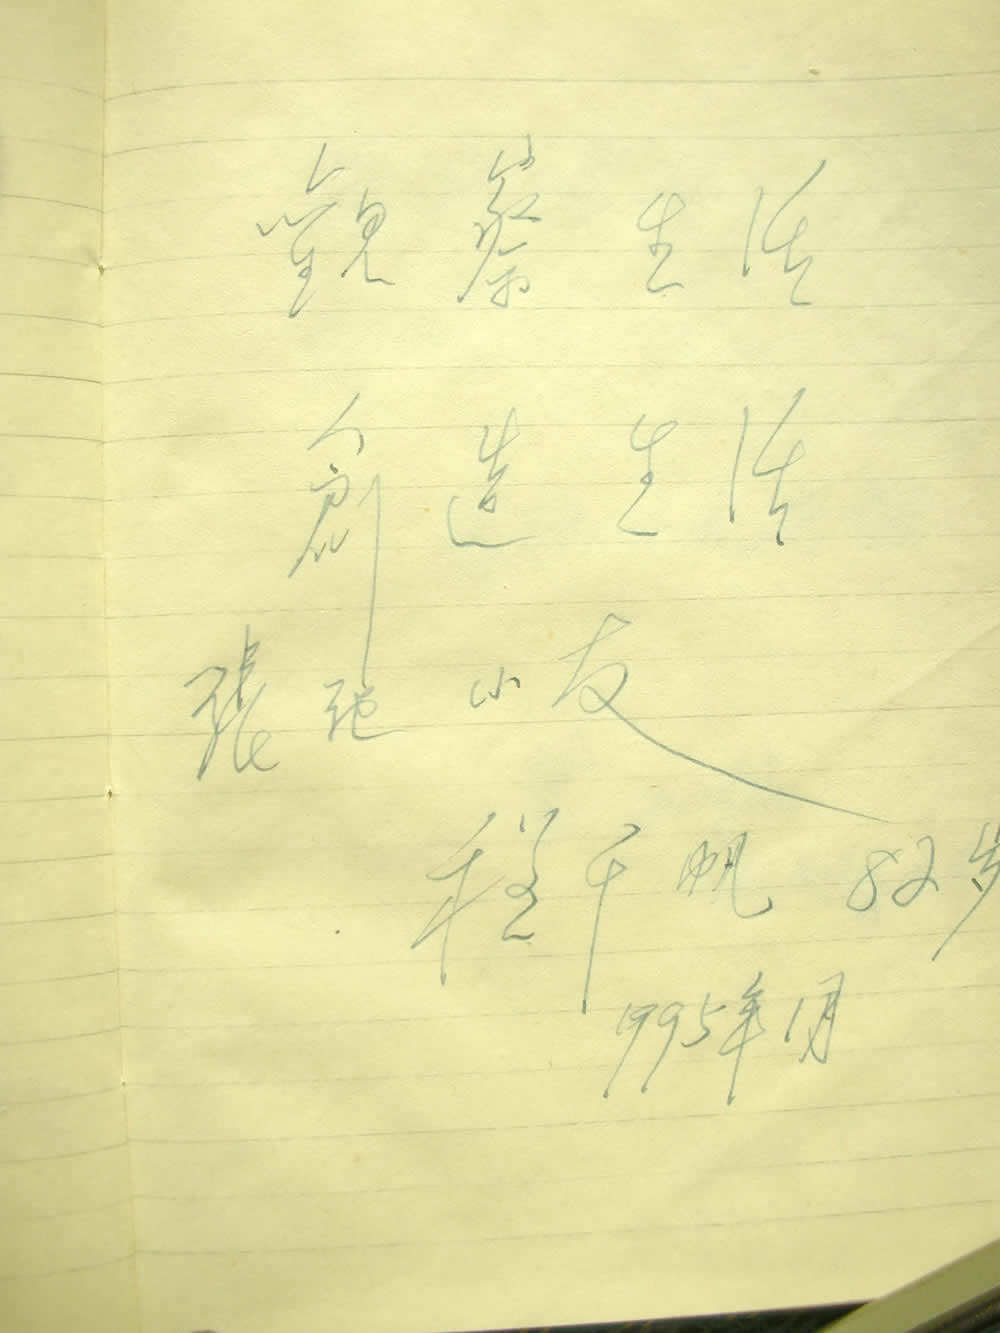 觀察生活
創造生活
張弛小友
程千帆 82岁
1995年1月